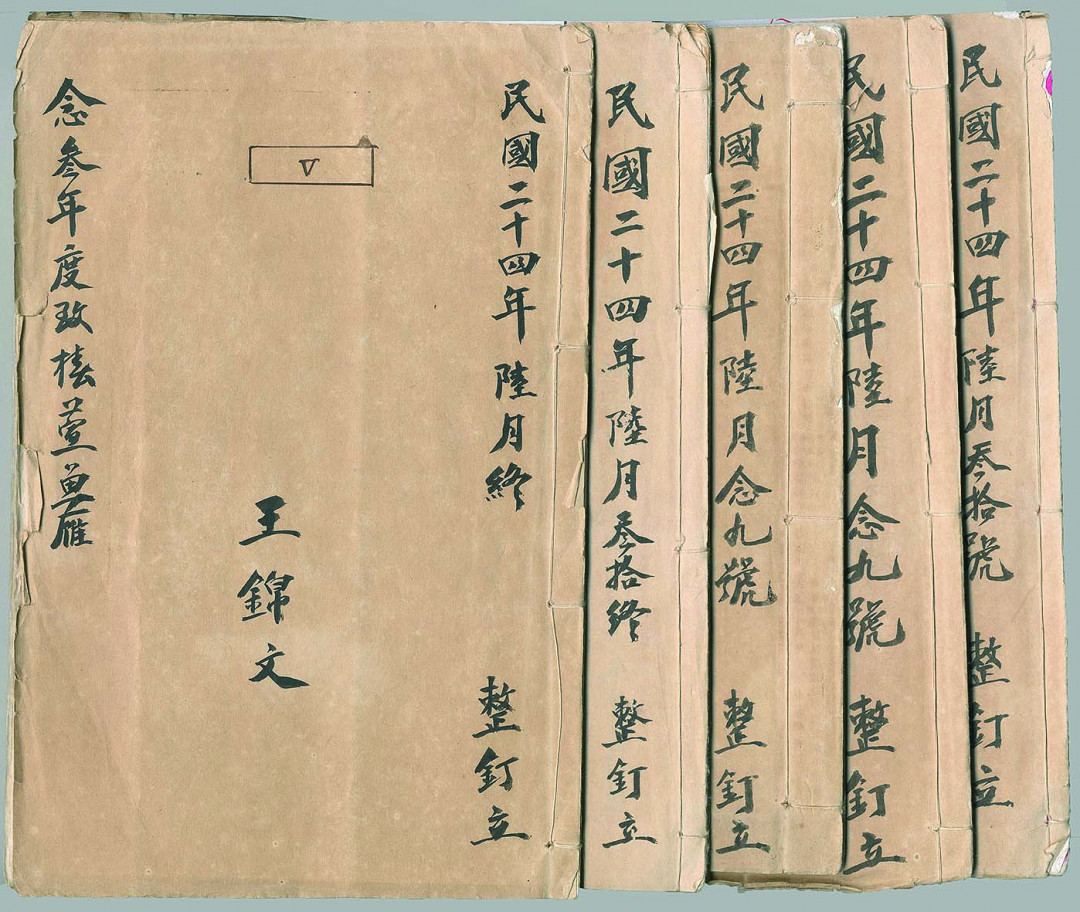 民國二十四年陸月叁拾號 整釘立
民國二十四年陸月念九號 整釘立
民國二十四年陸月念九號 整釘立
民國二十四年陸月叁拾終 整釘立
民國二十四年陸月終 整釘立
V
王錦文
念叁年度致椿萱魚雁